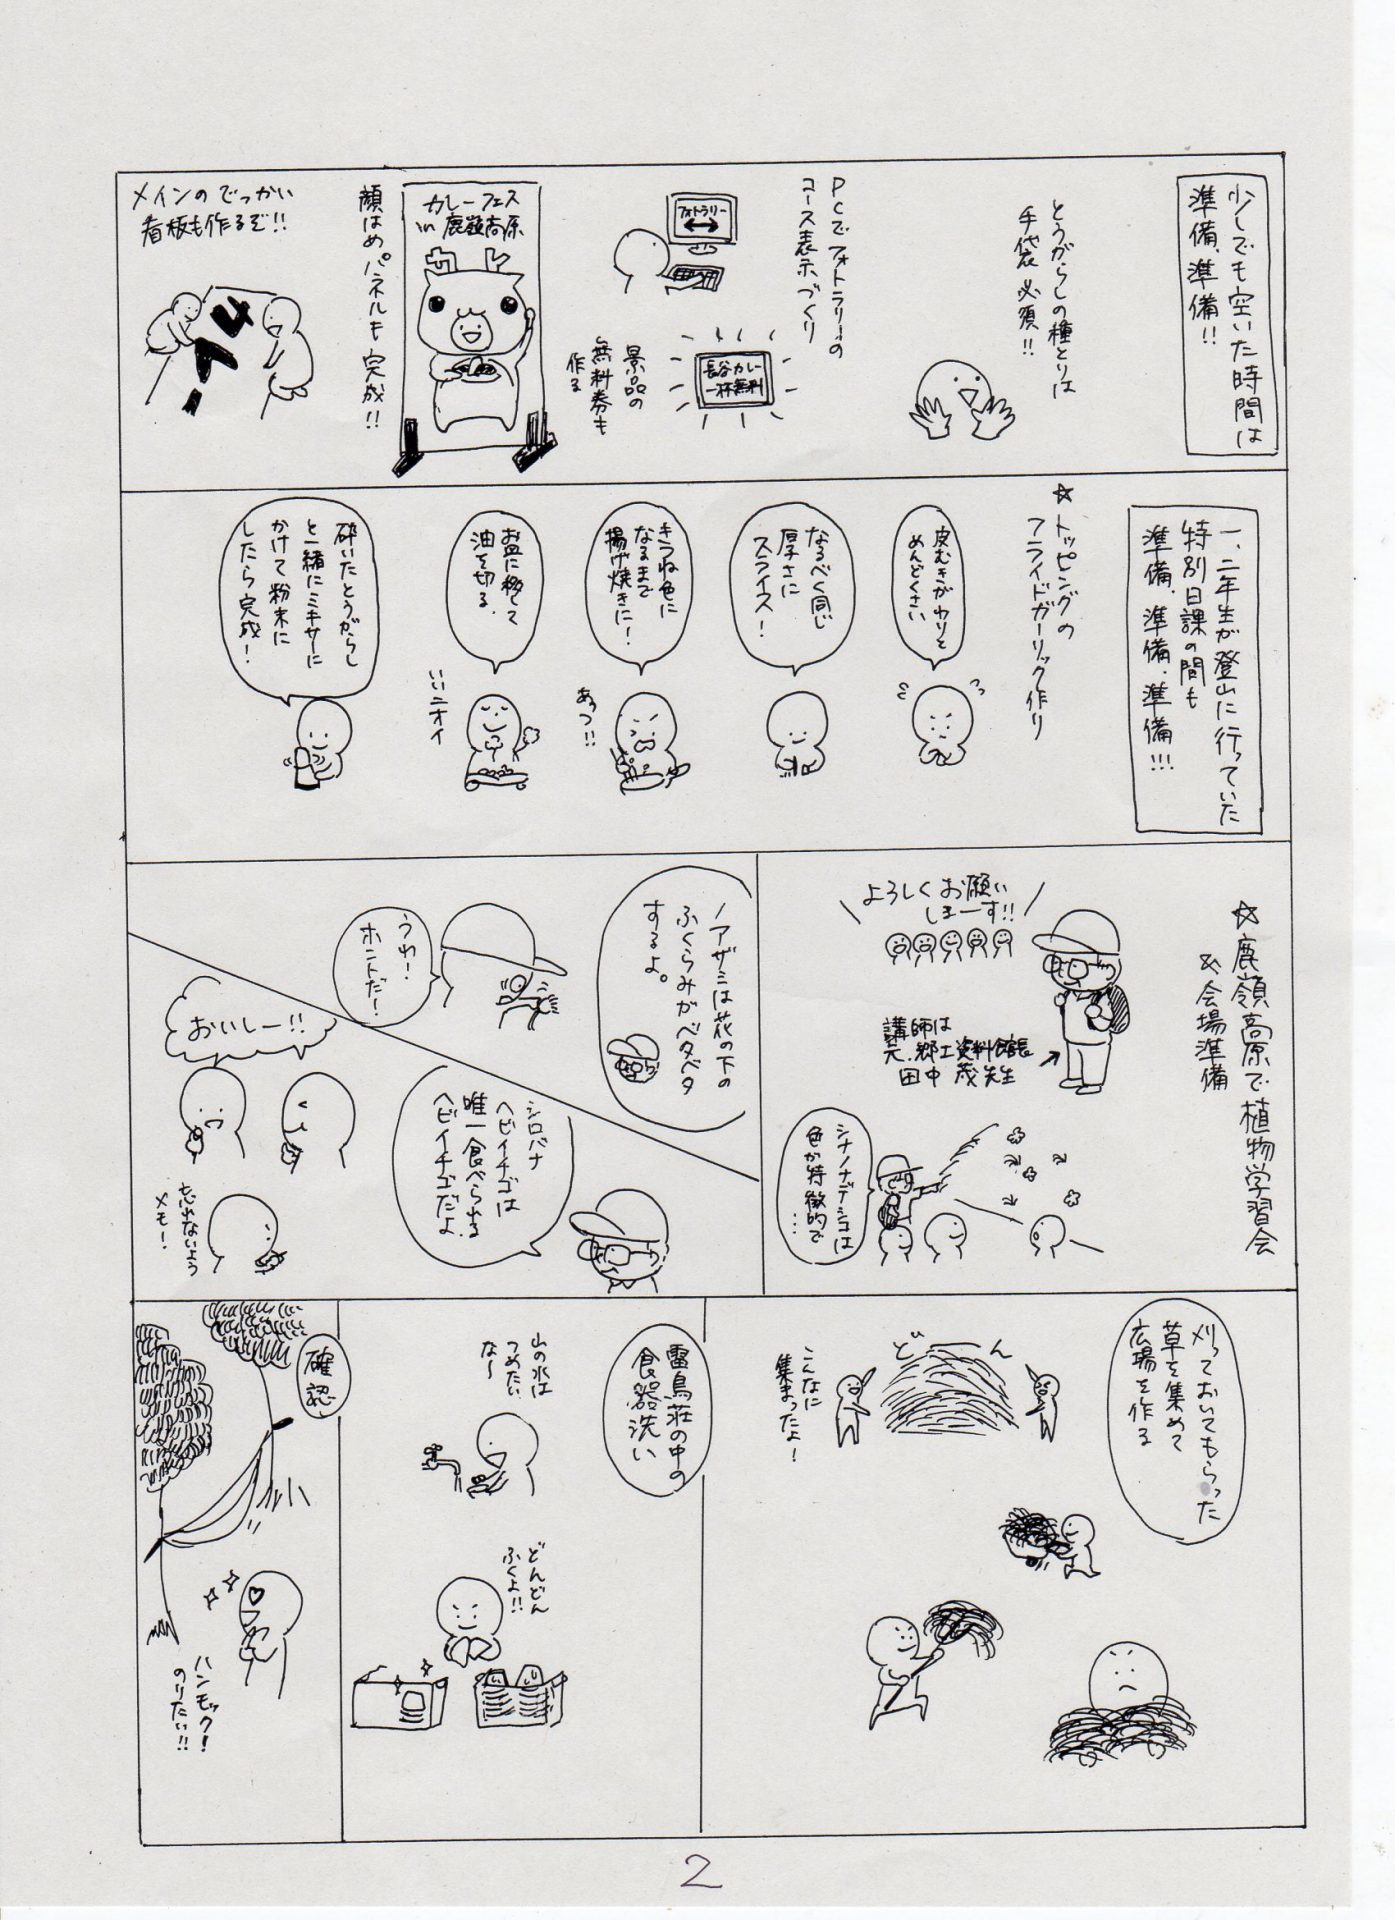 少しでも空いた時間は
準備、準備!!
とうがらしの種とりは
手袋必須!!
PCでフォトラリーの
コース表示づくり
フォトラリー
長谷カレー
一杯無料
景品の
無料券も
作る
カレーフェス
in 鹿嶺高原
カレー
顔はめパネルも完成!!
メインのでっかい
看板も作るぞ!!
一、二年生が登山に行っていた
特別日課の間も
準備、準備、準備!!!
☆トッピングの
フライドガーリック作り
皮むきがわりと
めんどくさい
なるべく同じ
厚さに
スライス!
きつね色に
なるまで
揚げ焼きに!
あっつ!!
お皿に移して
油を切る。
いいニオイ
砕いたとうがらし
と一緒にミキサーに
かけて粉末に
したら完成!
☆鹿嶺高原で植物学習会
&会場準備
よろしくお願い
しまーす!!
講師は
元郷土資料館長
田中 茂先生
シナノナデシコは
色が特徴的で
…
ノアザミは花の下の
ふくらみがベタベタ
するよ。
うわー!
ホントだー!
シロバナ
ヘビイチゴは
唯一食べられる
ヘビイチゴだよ
おいしー!!
忘れないよう
メモ!
刈っておいてもらった
草を集めて
広場を作る
どん
こんなに
集まったよ!
雷鳥荘の中の
食器洗い
山の水は
つめたい
な〜
どんどん
ふくよ!!
確認
ハンモック!
のりたい!!
2